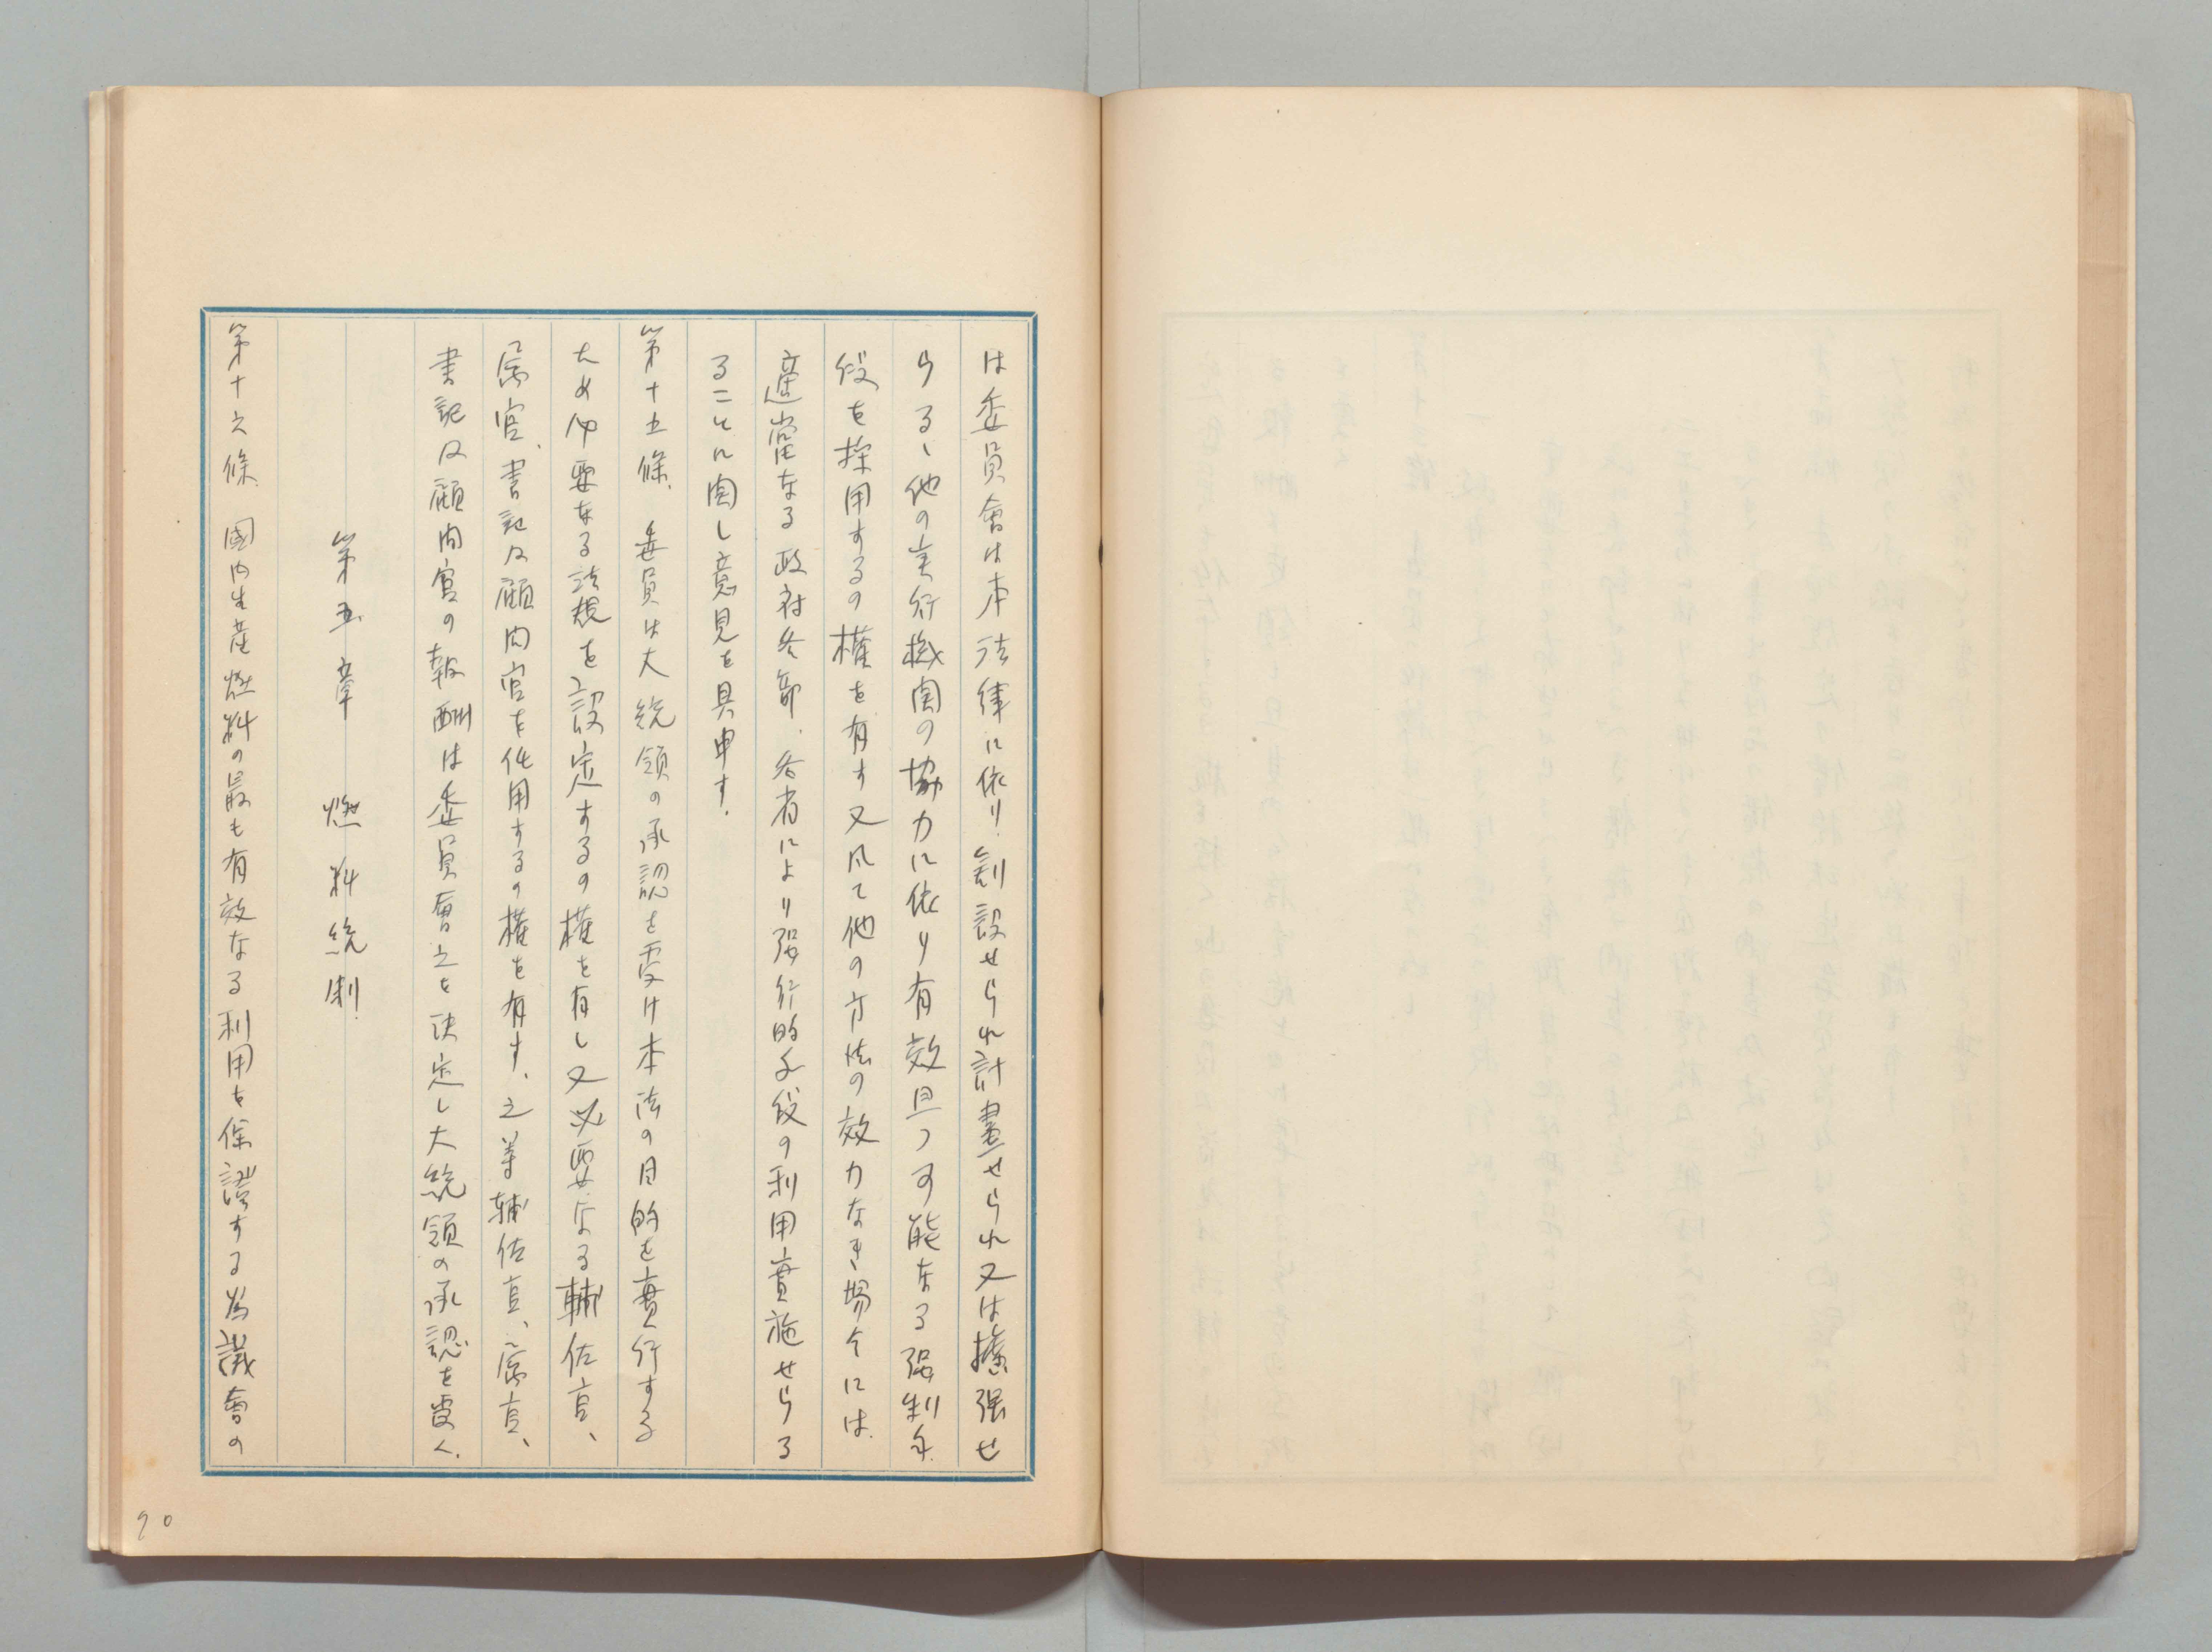 は委員會は本法律に依り創設せられ計畫せられ又は擴張せ
らるゝ他の実行機関の協力に依り有效且つ可能なる强制手
段を採用するの權を有す又凡て他の方法の效力なき場合には
適當なる政府各部、各省により强行的手段の利用實施せらる
ることに関し意見を具申す.
第十五條. 委員は大統領の承認を受け本法の目的を實行する
ため必要なる法規を設定するの權を有し又必要なる輔佐官、
属官、書記及顧問官を任用するの權を有す、之等輔佐官、属官、
書記及顧問官の報酬は委員會之を決定し大統領の承認を受く.
第五章 燃料統制.
第十六條. 國内生産燃料の最も有效なる利用を保證する為議會の
90